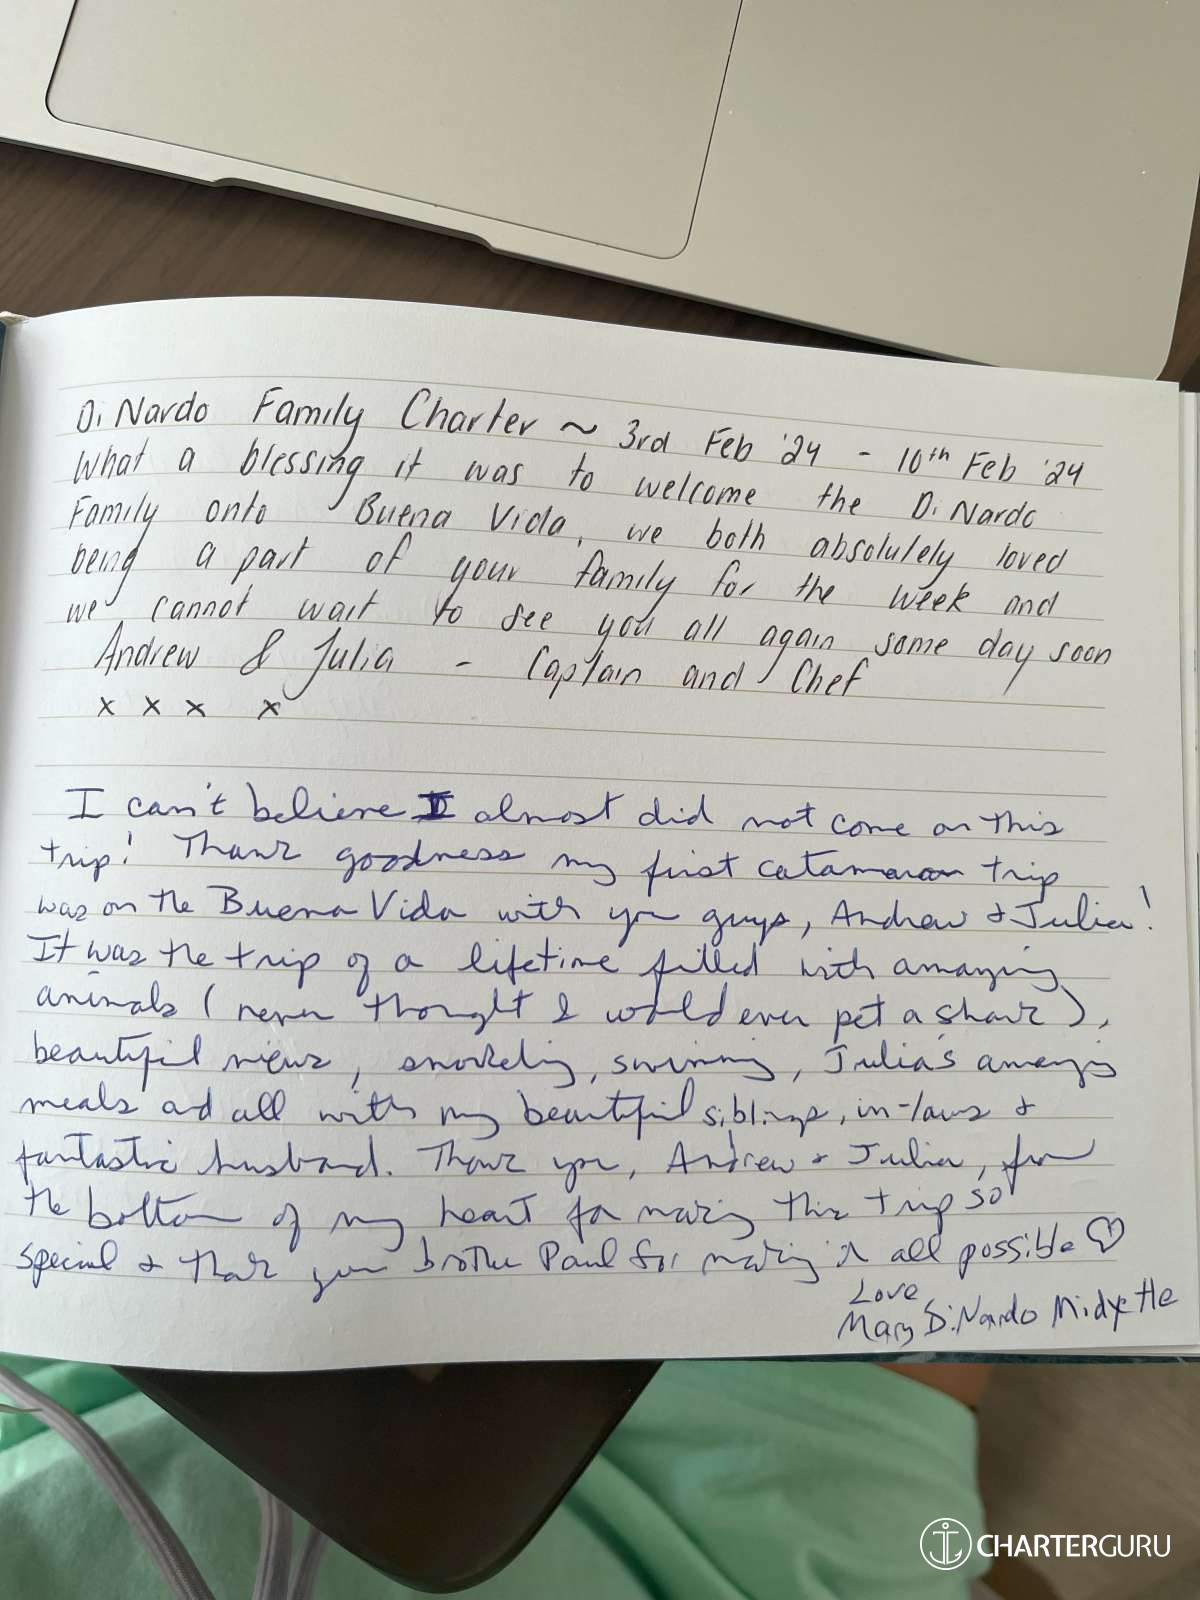 Di Nardo Family Charter ~ 3rd Feb '24 - 10th Feb '24
What a blessing it was to welcome the Di Nardo
Family onto Buena Vida, we both absolutely loved
being a part of your family for the week and
we cannot wait to see you all again some day soon
Andrew & Julia - Captain and Chef
x x x x
I can't believe I almost did not come on this
trip! Thank goodness my first catamaran trip
was on the Buena Vida with you guys, Andrew & Julia!
It was the trip of a lifetime filled with amazing
animals (never thought I would ever pet a shark),
beautiful views, snorkeling, swimming, Julia's amazing
meals and all with my beautiful siblings, in-laws &
fantastic husband. Thank you, Andrew & Julia, from
the bottom of my heart for making this trip so
special & thank you brother Paul for making it all possible ♡
Love,
Mary DiNardo Midyette
CHARTERGURU